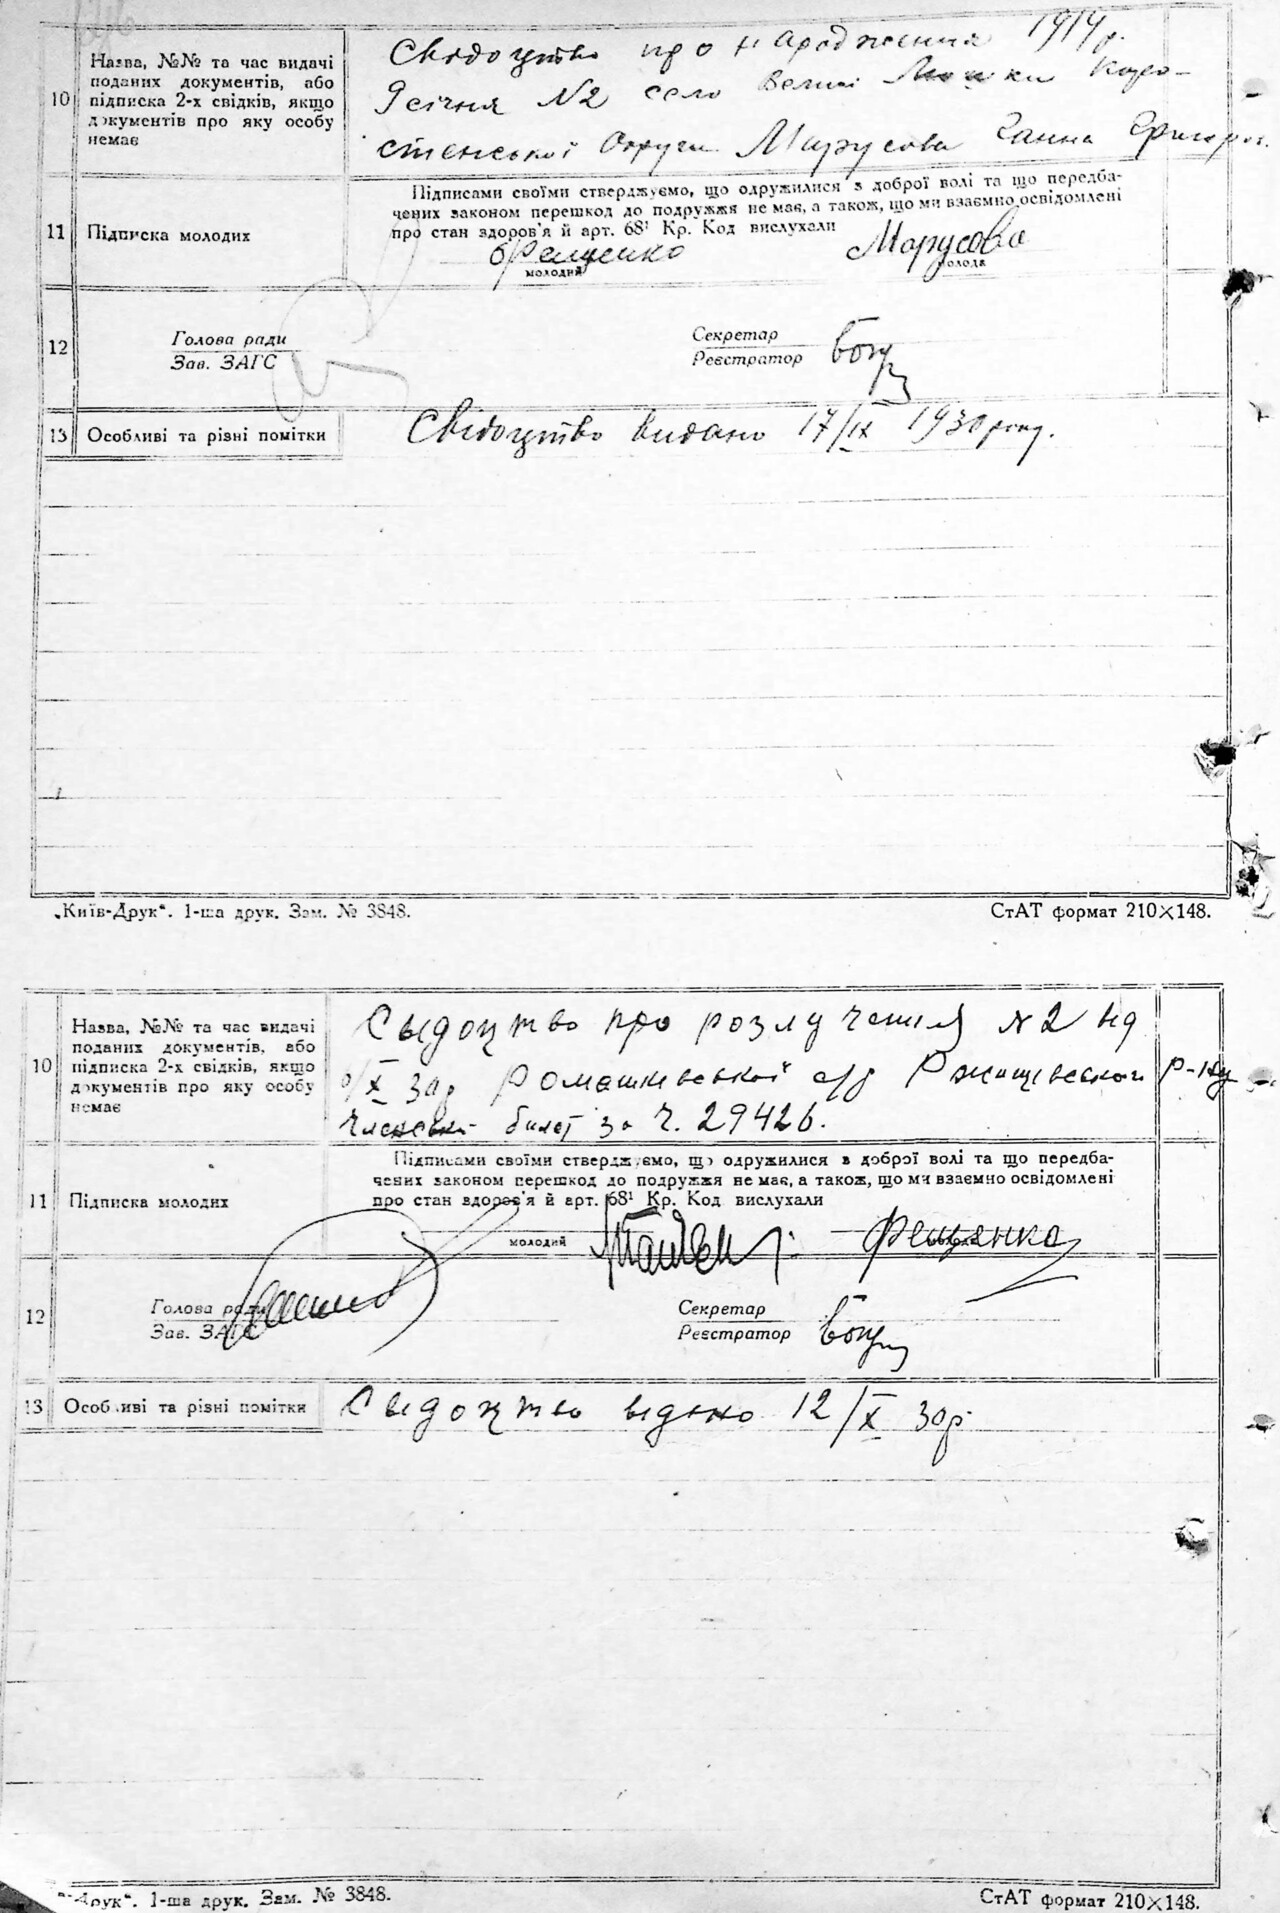 10
Назва, №№ та час видачі
поданих документів, або
підписка 2-х свідків, якщо
документів про яку особу
немає
Свідоцтво про народження 1914 р.
9 січня №2 село Великі Коро-
стенської Округи Марусова Ганна Григоров.
11 Підписка молодих
Підписами своїми стверджуємо, що одружилися з доброї волі та що передба-
чених законом перешкод до подружжя не має, а також, що ми взаємно освідомлені
про стан здоров'я й арт. 68¹ Кр. Код вислухали
Фещенко Марусова
молодий молода
12
Голова ради
Зав. ЗАГС
Секретар
Реєстратор
13 Особливі та різні помітки
Свідоцтво видано 17/IX 1930 року.
„Київ-Друк“. 1-ша друк. Зам. № 3848. СтАТ формат 210×148.
10
Назва, №№ та час видачі
поданих документів, або
підписка 2-х свідків, якщо
документів про яку особу
немає
Сыдоцтво про розлучення №2 від
/X 30р Ромашківської с/р Ржищівського р-ну
Членськ. билет за ч. 29426.
11 Підписка молодих
Підписами своїми стверджуємо, що одружилися з доброї волі та що передба-
чених законом перешкод до подружжя не має, а також, що ми взаємно освідомлені
про стан здоров'я й арт. 68¹ Кр. Код вислухали
молодий Фещенко
12
Голова ради
Зав. ЗАГС
Секретар
Реєстратор
13 Особливі та різні помітки
Сыдоцтво выдано 12/X 30р.
-Друк“. 1-ша друк. Зам. № 3848. СтАТ формат 210×148.